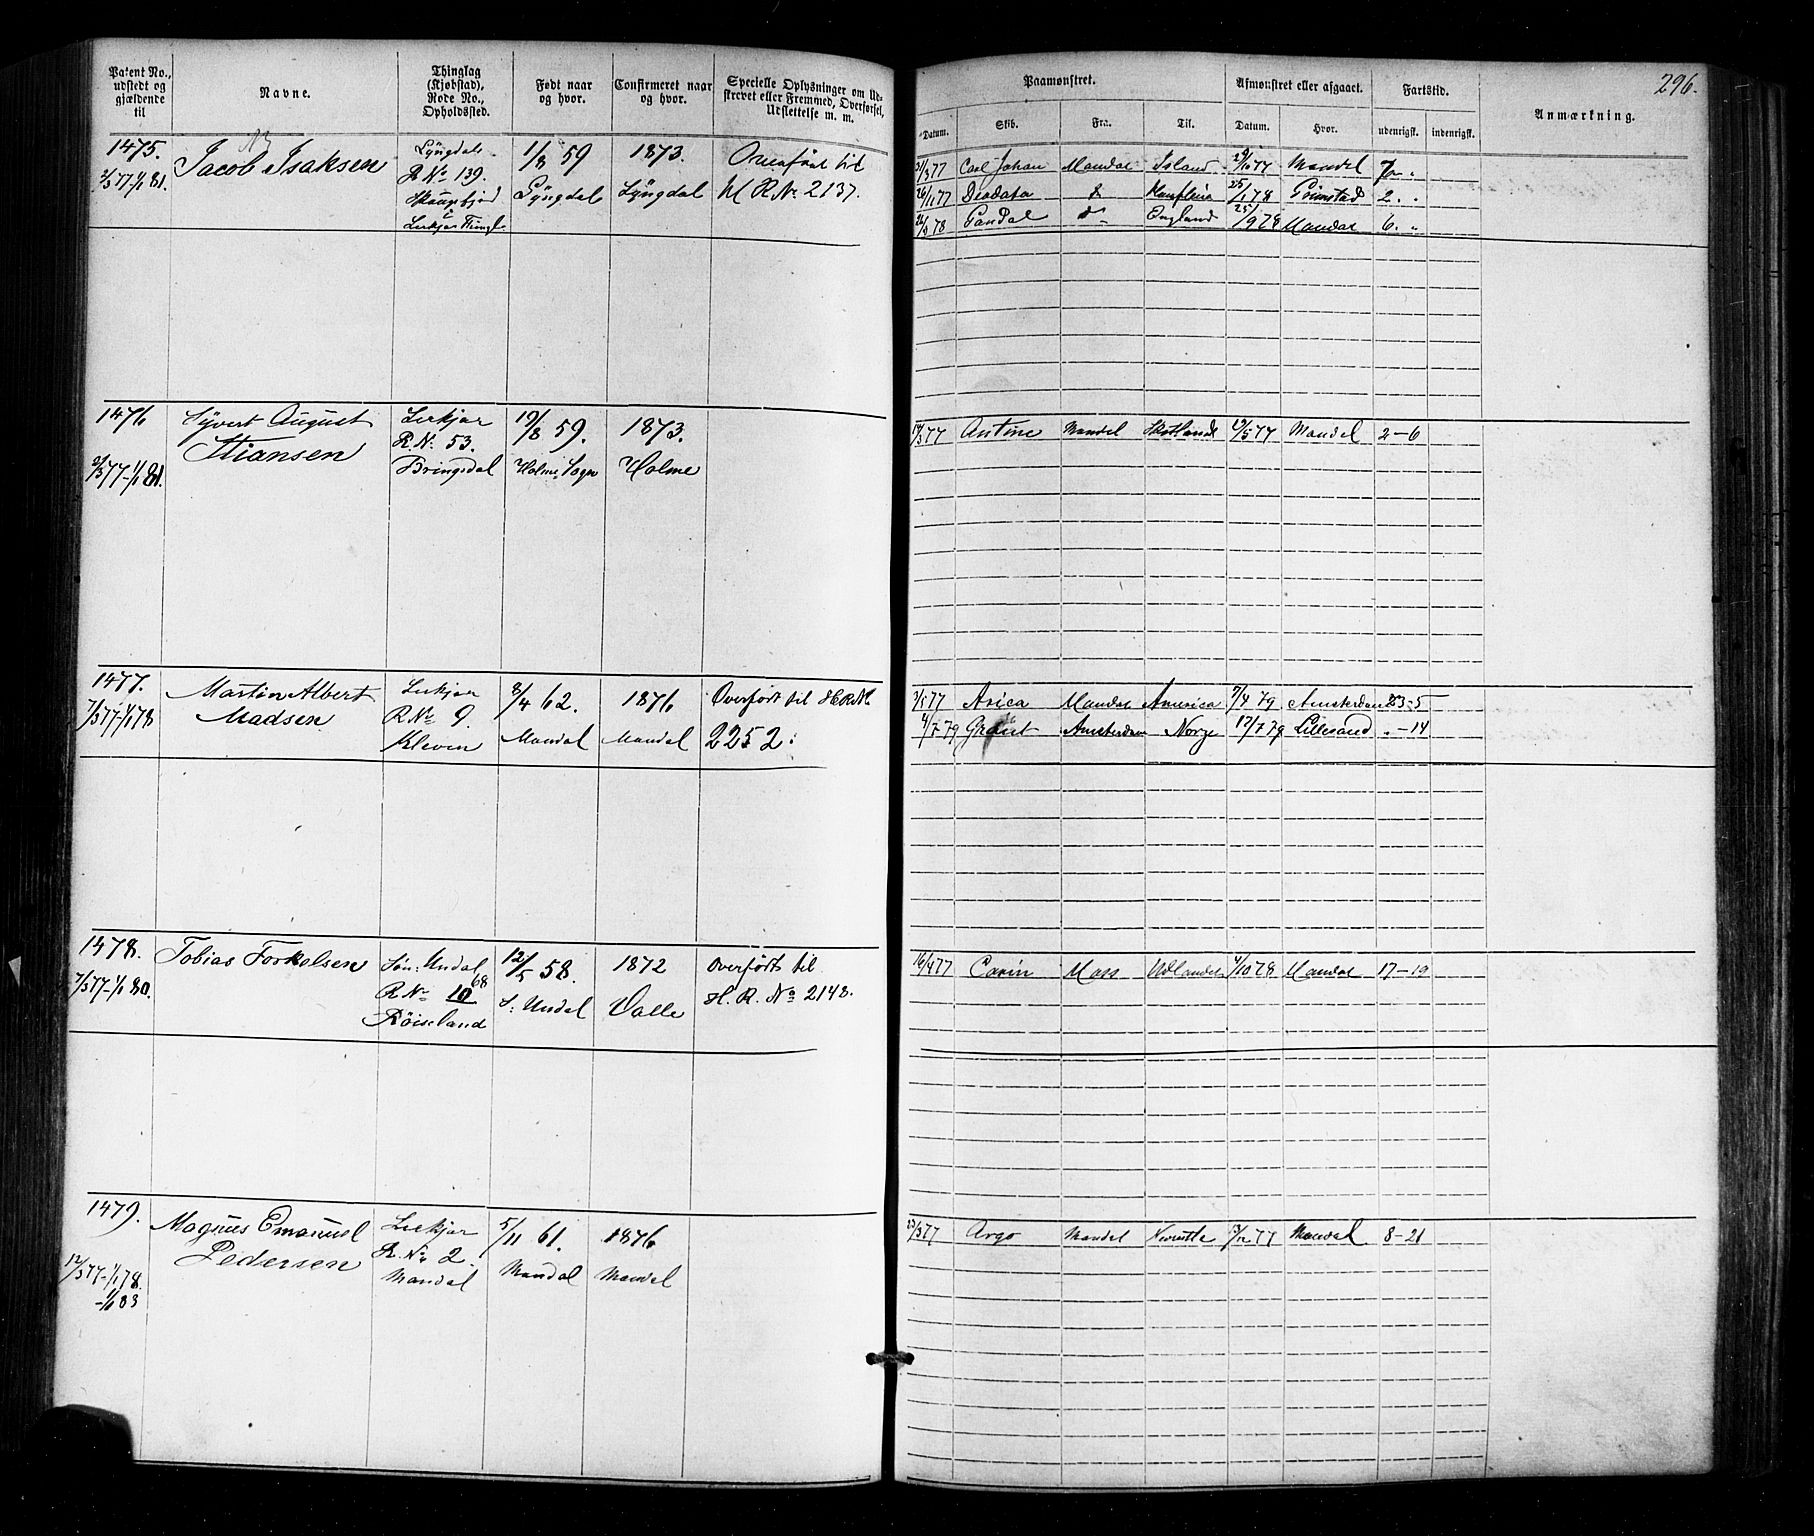 Patent No., udstedt og gjældende til
Navne.
Thinglag (Kjøbstad), Rode No., Opholdssted.
Født naar og hvor.
Confirmeret naar og hvor.
Specielle Oplysninger om Udskrevet eller Fremmed, Overførsel, Udslettelse m. m.
Paamønstret.
Afmønstret eller afgaaet.
Fartstid.
Anmærkning.
296.
Datum.
Skib.
Fra.
Til.
Datum.
Hvor.
udenrigsk.
indenrigsk.
1475.
2/3 77-1/1 81.
Jacob Isaksen
Lyngdals
R No 139.
Lyngdal
1/8 59
Lyngdal
1873.
Overført til
H R No 2137.
31/3 77 Carl Johan Mandal Island 29/10 77 Mandal 7
26/11 77 Deodata 25/1 78 Grimstad 2. "
Gandal England 25/9 78 Mandal 6. "
1476
2/3 77-1/1 81.
Syvert August
Stiansen
R. No 53.
Bringsdal
19/8 59.
Holme Sogn
1873.
Holme
17/3 77 Antine Mandal Skotland 19/5 77 Mandal 2-6
1477.
7/3 77-1/1 78
Martin Albert
Madsen
R No 9.
Kleven
8/4 62.
Mandal
1876
Mandal
Overført til H R No
2252.
Arica Mandal America 7/4 79 Amsterdam 23-5
4/7 79 Amsterdam Norge 17/7 79 Lillesand " -14
1478.
7/3 77-1/1 80.
Tobias Torkelsen
Søn: Undal
R No 10 68
Röiseland
12/5 58.
S: Undal
1872
Valle
Overført til
H. R. No 2148.
16/4 77 Carin Moss Udlandet 4/10 78 Mandal 17-19
1479.
12/3 77-1/1 78.
-1/1 83
Magnus Emanuel
Pedersen
R. No 2.
Mandal
5/11 61.
Mandal
1876
Mandal
23/3 77 Argo Mandal 13/12 77 Mandal 8-21